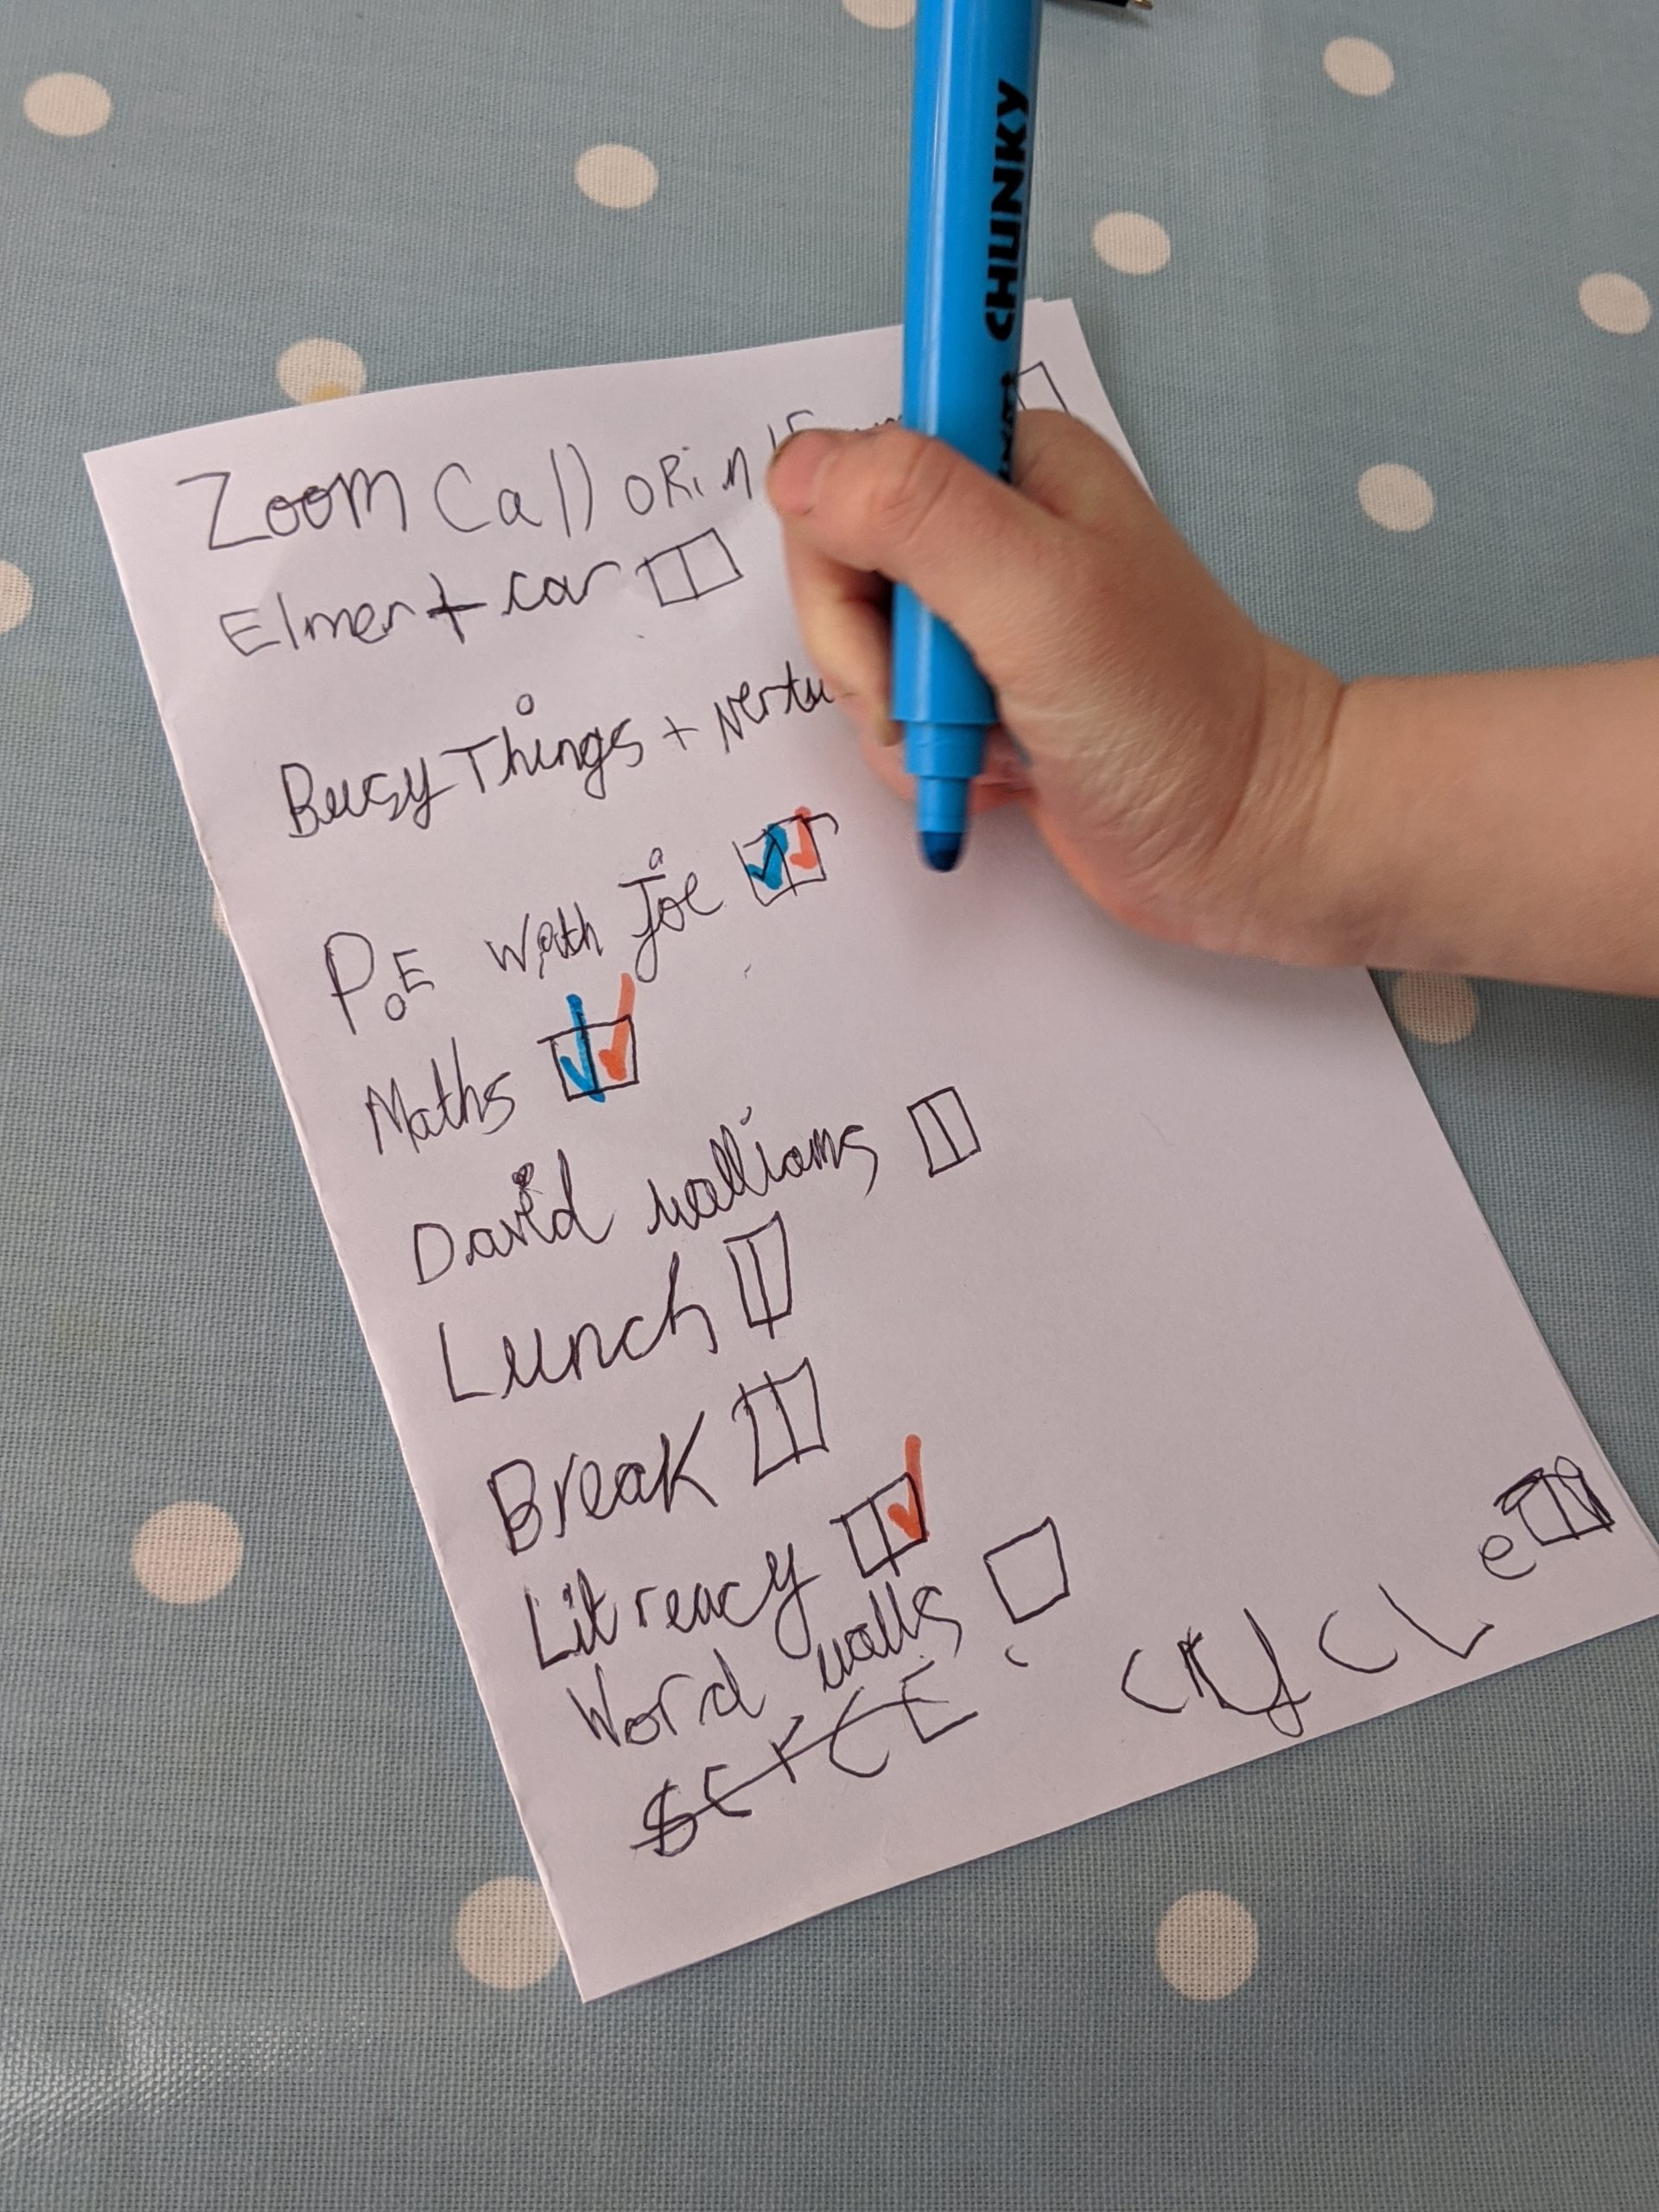 CHUNKY
Zoom Call ORin
Elmer + car
Busy Things +
P.E with Joe
Maths
David walliams
Lunch
Break
Litreacy
Word walls
CYCLe